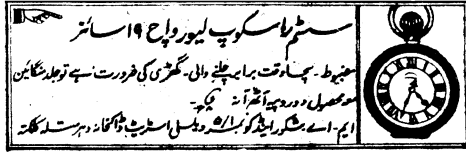 سسٹم راسکوپ لیور واچ ۱۹ سائز
مضبوط۔ سچا وقت برابر چلنے والی۔ گھڑی کی ضرورت ہے تو جلد منگائیں
مع محصول دو روپیہ آٹھ آنہ
ایم۔ اے شکور اینڈ کو نمبر ۵/۱ ویلسلی اسٹریٹ ڈاکخانہ دھرمتلہ کلکتہ